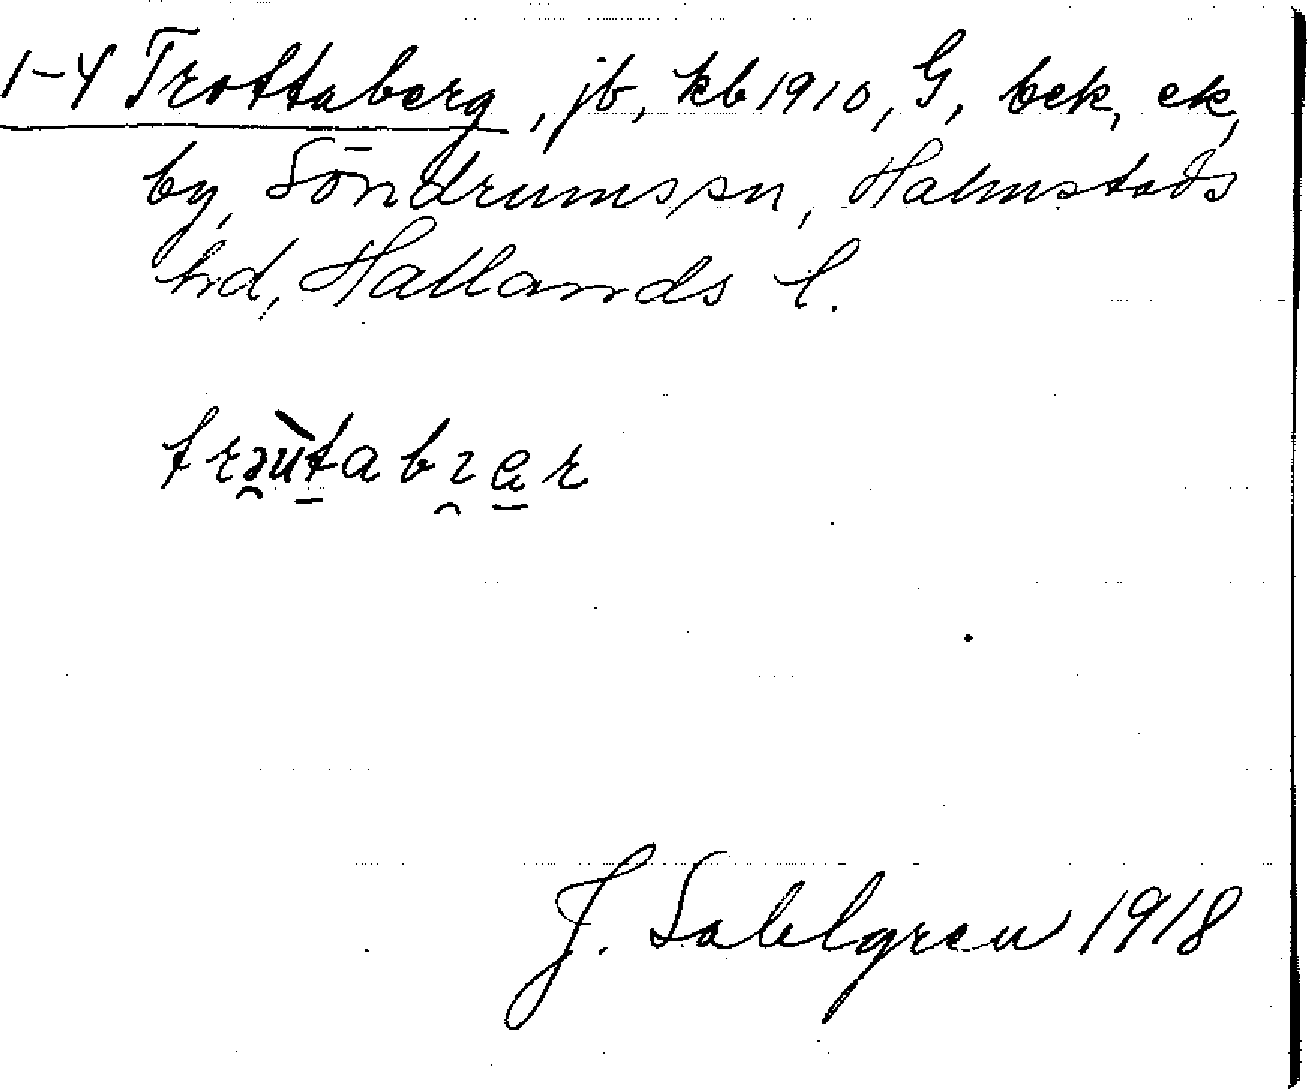 1-4 Trottaberg, jb, kb 1910, G, bek, ek,
by, Söndrums sn, Halmstads
hd, Hallands l.
trəu̇tabɿar
J. Sahlgren 1918